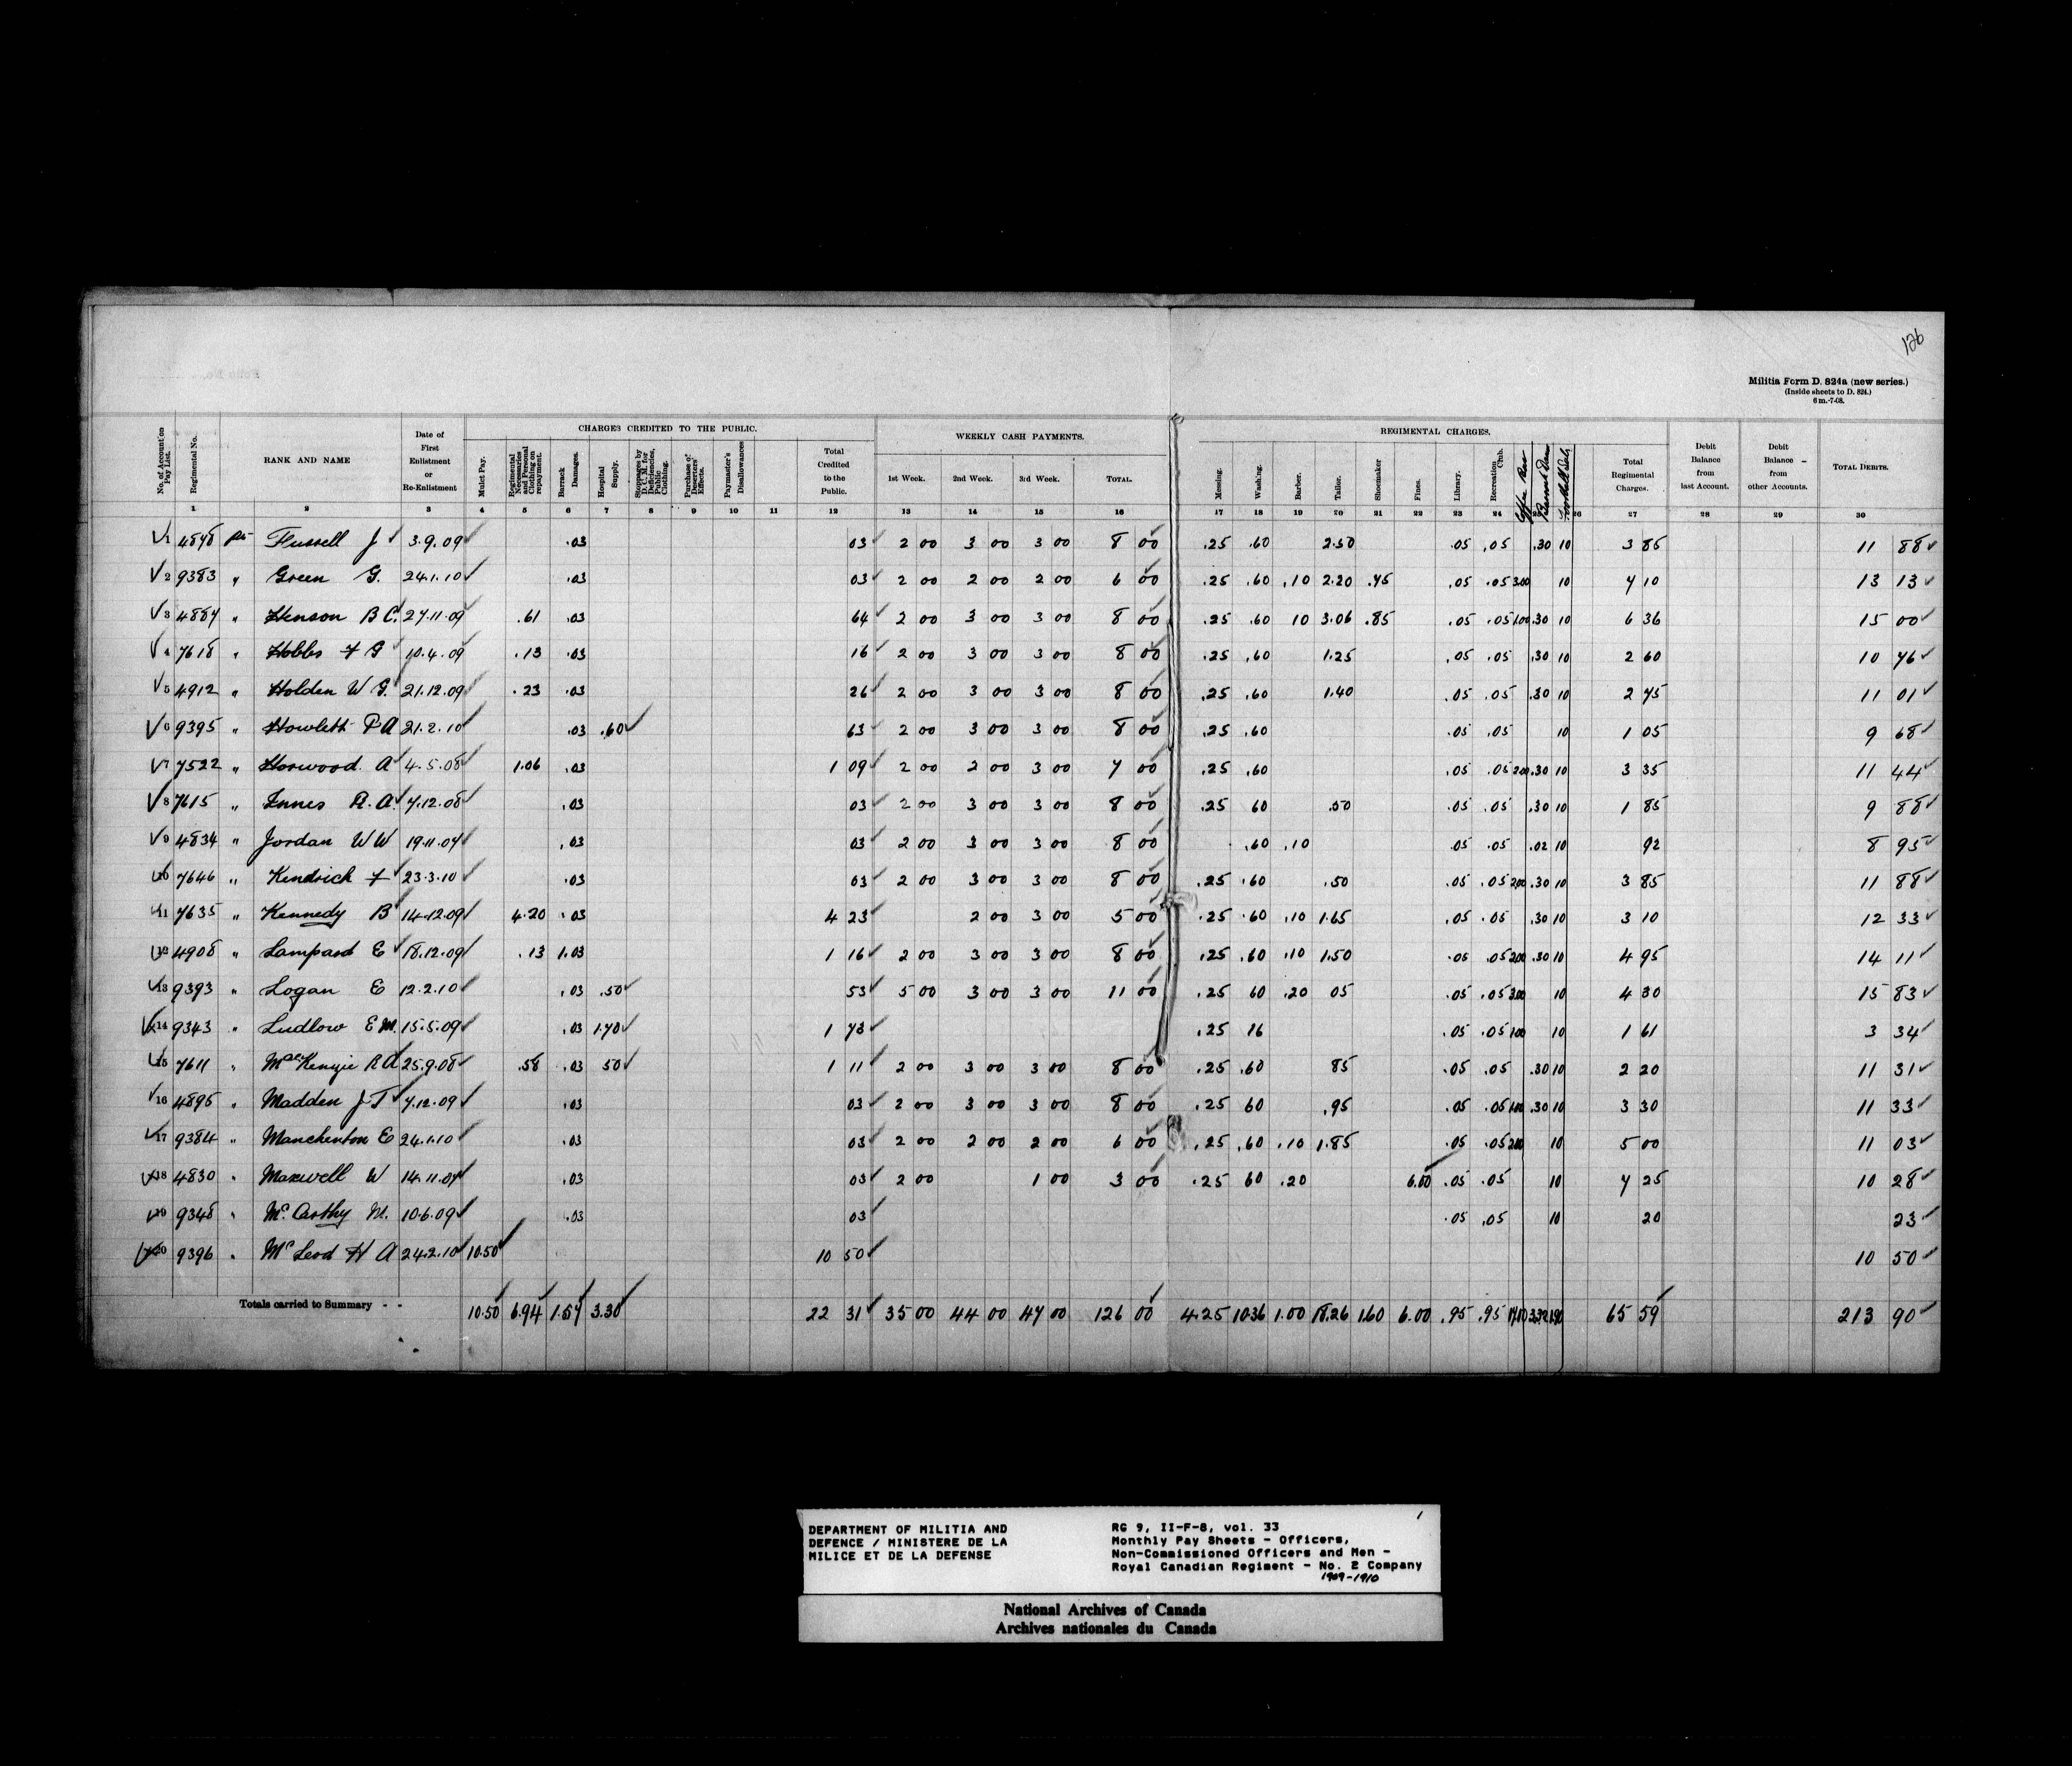 126
Militia Form D. 824a (new series.)
(Inside sheets to D. 824.)
6 m.-7-08.
CHARGES CREDITED TO THE PUBLIC. WEEKLY CASH PAYMENTS. REGIMENTAL CHARGES.
No. of Account on Pay List. Regimental No. RANK AND NAME Date of First Enlistment or Re-Enlistment Mulct Pay. Regimental Necessaries and Personal Clothing on repayment. Barrack Damages. Hospital Supply. Stoppages by D. C. M. for Deficiencies, Public Clothing. Purchase of Deserters' Effects. Paymaster's Disallowances Total Credited to the Public. 1st Week. 2nd Week. 3rd Week. TOTAL. Messing. Washing. Barber. Tailor. Shoemaker Fines. Library. Recreation Club. Total Regimental Charges. Debit Balance from last Account. Debit Balance from other Accounts. TOTAL DEBITS.
1 2 3 4 5 6 7 8 9 10 11 12 13 14 15 16 17 18 19 20 21 22 23 24 25 26 27 28 29 30
1 4848 Pte Fussell J 3.9.09 .03 03 2 00 3 00 3 00 8 00 .25 .60 2.50 .05 .05 .30 10 3 85 11 88
2 9383 " Green G. 24.1.10 .03 03 2 00 2 00 2 00 6 00 .25 .60 .10 2.20 .75 .05 .05 3.00 10 7 10 13 13
3 4887 " Henson B C. 27.11.09 .61 .03 64 2 00 3 00 3 00 8 00 .25 .60 10 3.06 .85 .05 .05 1.00 .30 10 6 36 15 00
4 7618 " Hobbs F G 10.4.09 .13 .03 16 2 00 3 00 3 00 8 00 .25 .60 1.25 .05 .05 .30 10 2 60 10 76
5 4912 " Holden W G. 21.12.09 .23 .03 26 2 00 3 00 3 00 8 00 .25 .60 1.40 .05 .05 .30 10 2 75 11 01
6 9395 " Howlett P A 21.2.10 .03 .60 63 2 00 3 00 3 00 8 00 .25 .60 .05 .05 10 1 05 9 68
7 7522 " Horwood A 4.5.08 1.06 .03 1 09 2 00 2 00 3 00 7 00 .25 .60 .05 .05 2.00 .30 10 3 35 11 44
8 7615 " Innes R. A. 7.12.08 .03 03 2 00 3 00 3 00 8 00 .25 60 .50 .05 .05 .30 10 1 85 9 88
9 4834 " Jordan W W 19.11.07 .03 03 2 00 3 00 3 00 8 00 .60 .10 .05 .05 .02 10 92 8 95
10 7646 " Kendrick F 23.3.10 .03 03 2 00 3 00 3 00 8 00 .25 .60 .50 .05 .05 2.00 .30 10 3 85 11 88
11 7635 " Kennedy B 14.12.09 4.20 .03 4 23 2 00 3 00 5 00 .25 .60 .10 1.65 .05 .05 .30 10 3 10 12 33
12 4908 " Lampard E 18.12.09 .13 1.03 1 16 2 00 3 00 3 00 8 00 .25 .60 .10 1.50 .05 .05 2.00 .30 10 4 95 14 11
13 9393 " Logan E 12.2.10 .03 .50 53 5 00 3 00 3 00 11 00 .25 60 .20 05 .05 .05 3.00 10 4 30 15 83
14 9343 " Ludlow E M. 15.5.09 .03 1.70 1 73 .25 16 .05 .05 1.00 10 1 61 3 34
15 7611 " MacKenzie R A 25.9.08 .58 .03 50 1 11 2 00 3 00 3 00 8 00 .25 .60 85 .05 .05 .30 10 2 20 11 31
16 4895 " Madden J T 7.12.09 .03 03 2 00 3 00 3 00 8 00 .25 60 .95 .05 .05 1.00 .30 10 3 30 11 33
17 9384 " Manchenton E 24.1.10 .03 03 2 00 2 00 2 00 6 00 .25 .60 .10 1.85 .05 .05 2.00 10 5 00 11 03
18 4830 " Maxwell W 14.11.07 .03 03 2 00 1 00 3 00 .25 60 .20 6.00 .05 .05 10 7 25 10 28
19 9348 " Mc Carthy M. 10.6.09 .03 03 .05 .05 10 20 23
20 9396 " Mc Leod H A 24.2.10 10.50 10 50 10 50
Totals carried to Summary - - 10.50 6.94 1.57 3.30 22 31 35 00 44 00 47 00 126 00 4.25 10.36 1.00 18.26 1.60 6.00 .95 .95 17.00 3.32 1.90 65 59 213 90
DEPARTMENT OF MILITIA AND
DEFENCE / MINISTERE DE LA
MILICE ET DE LA DEFENSE
RG 9, II-F-8, vol. 33
Monthly Pay Sheets - Officers,
Non-Commissioned Officers and Men -
Royal Canadian Regiment - No. 2 Company
1909-1910
National Archives of Canada
Archives nationales du Canada